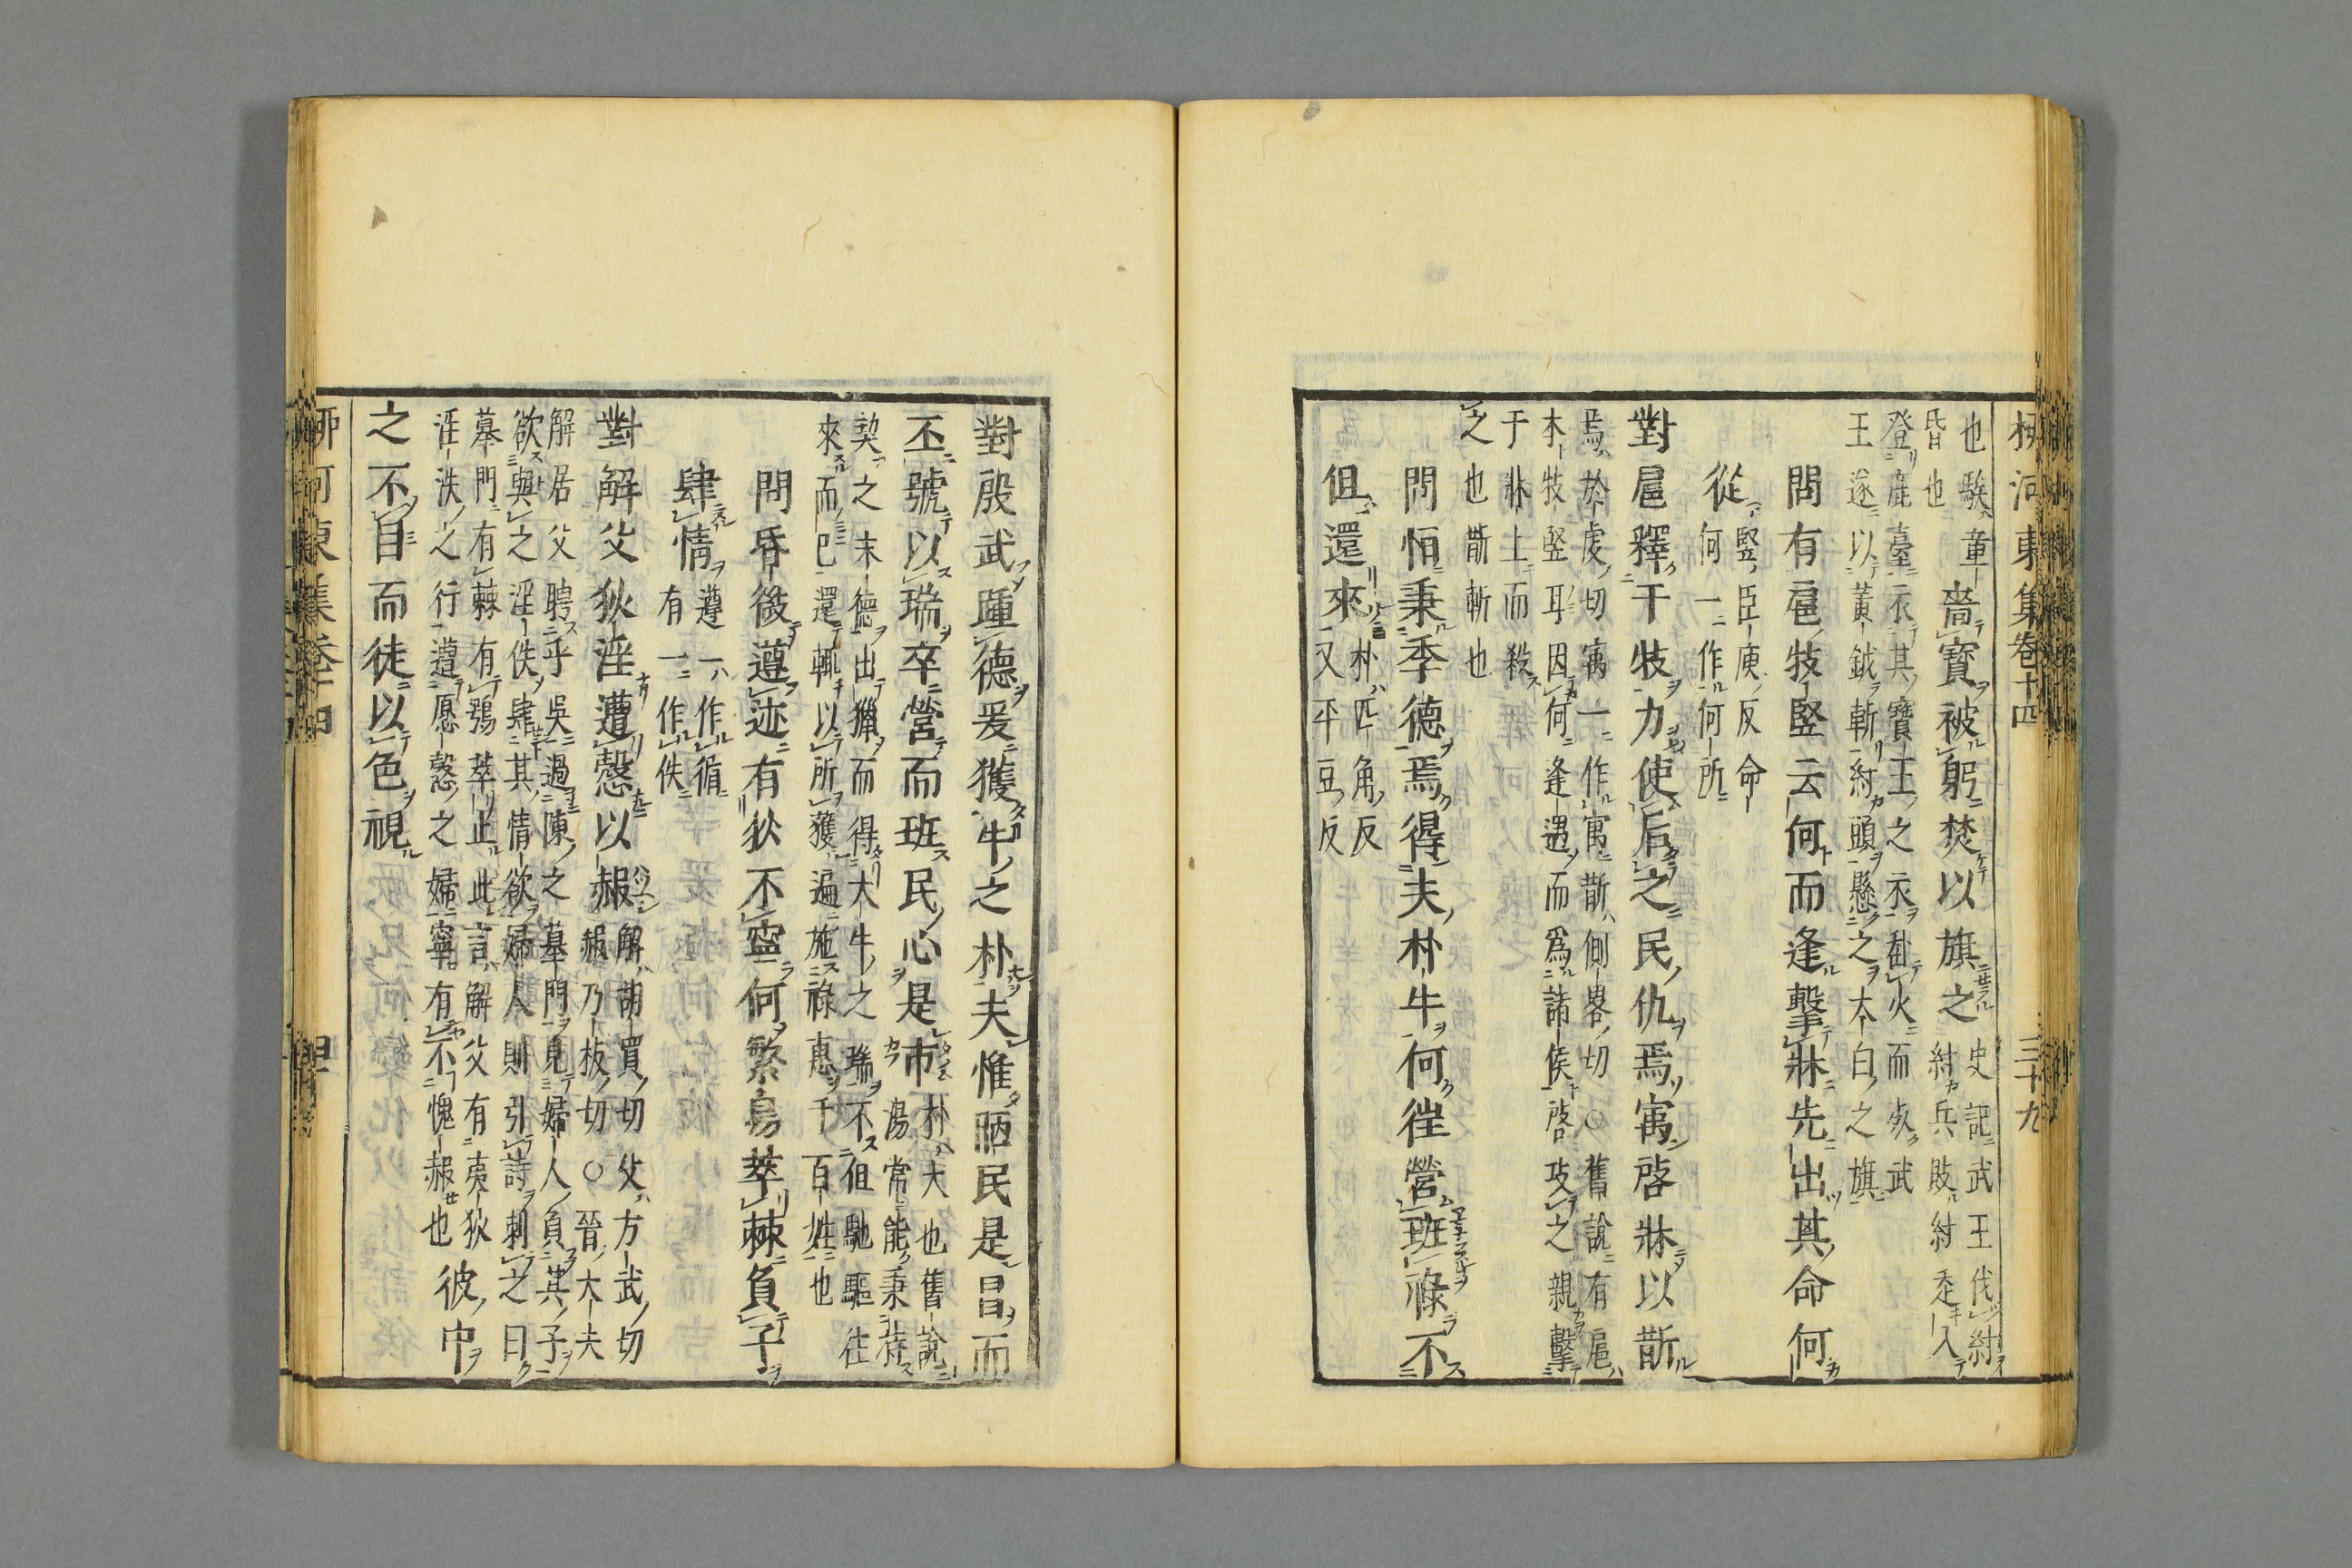 柳河東集卷十四 三十九
也騃童
昏也
嗇寶被躬焚以旗之
史記武王伐紂
紂兵敗紂走入
登鹿臺衣其寶玉之衣赴火而死武
王遂以黃鉞斬紂頭懸之太白之旗
問有扈牧竪云何而逢擊牀先出其命何
從
竪臣庾反命
何一作何所
對扈釋于牧力使后之民仇焉寓啓牀以斮
焉於虔切寓一作寓斮側畧切○舊說有扈
本牧竪耳因何逢遇而爲諸侯啓攻之親擊
于牀上而殺
之也斮斬也
問恒秉季德焉得夫朴牛何徃營班祿不
但還來
朴匹角反
又平豆反
對殷武踵德爰獲牛之朴夫惟陋民是冒而
丕號以瑞卒營而班民心是市
朴夫也舊說
湯常能秉持
契之末德出獵而得大牛之瑞不但馳驅往
來而已還輒以所獲遍施祿惠于百姓也
問昏微遵迹有狄不寧何繁鳥萃棘負子
肆情
遵一作循
有一作佚
對解父狄淫遭愨以赧
解胡買切父方武切
赧乃板切○晉大夫
解居父聘乎吳過陳之墓門見婦人負其子
欲與之淫佚肆其情欲婦人則引詩刺之曰
墓門有棘有鴞萃止此言解父有夷狄
淫泆之行遭愿愨之婦寧有不愧赧也
彼中
之不目而徒以色視
柳河東集卷十四